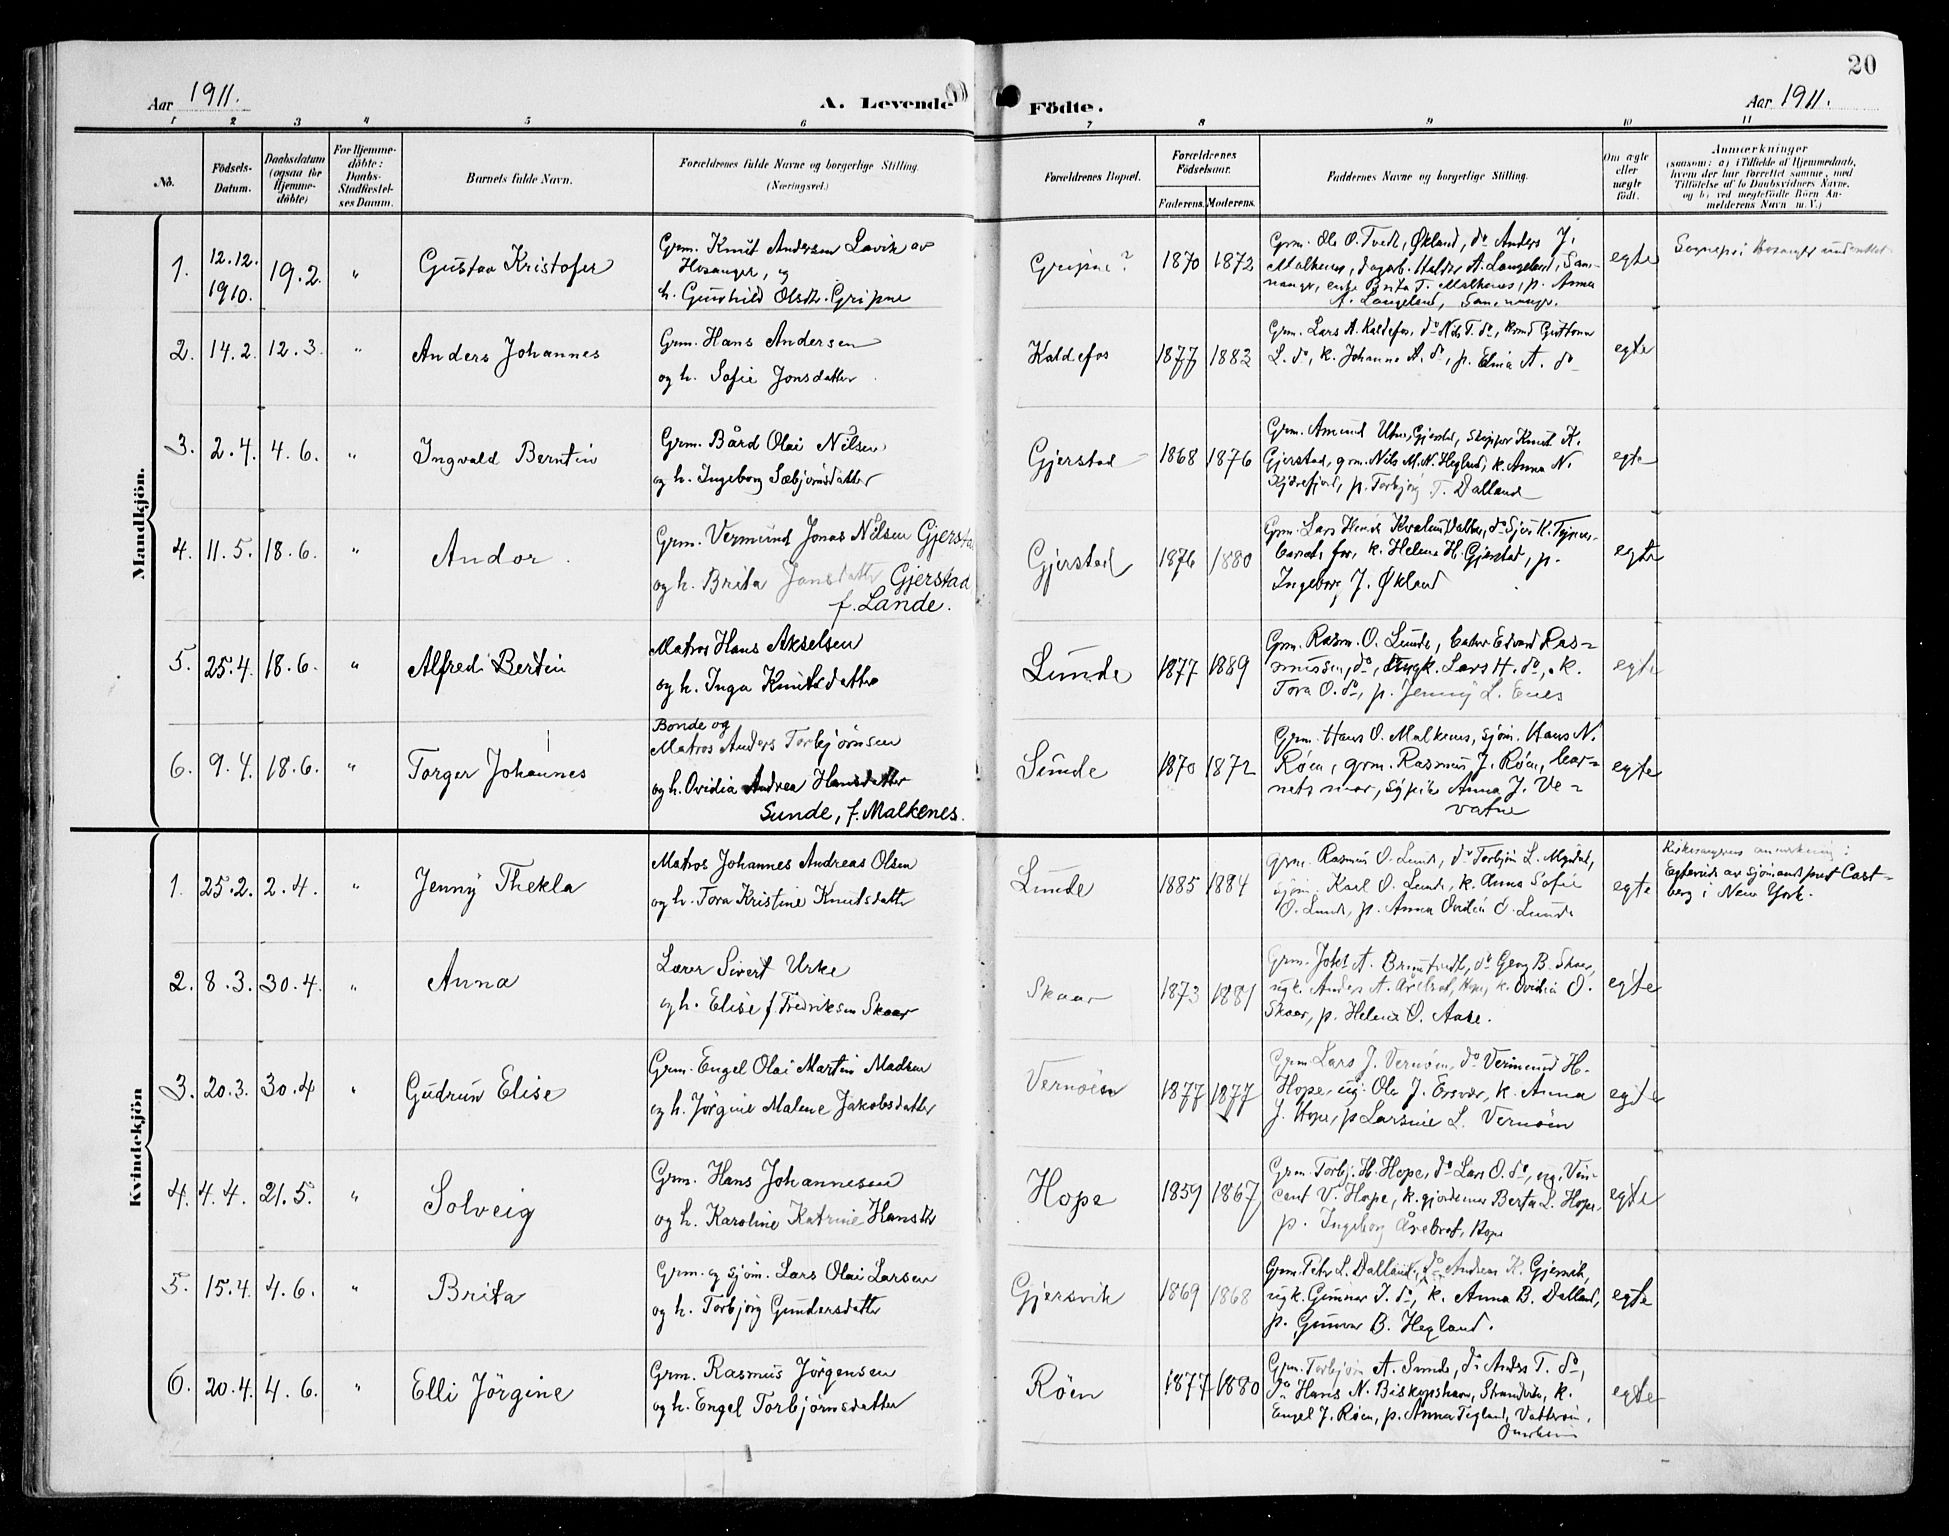 20
Aar 1911.
A. Levende
Födte.
Aar 1911.
1 2 3 4 5 6 7 8 9 10 11
No.
Födsels-
Datum.
Daabsdatum
(ogsaa for
Hjemme-
döbte)
For Hjemme-
döbte:
Daabs-
Stadfæstel-
ses Datum.
Barnets fulde Navn.
Forældrenes fulde Navne og borgerlige Stilling.
(Næringsvei.)
Forældrenes Bopæl.
Forældrenes
Födselsaar.
Faderens. Moderens.
Faddernes Navne og borgerlige Stilling.
Om ægte
eller
uægte
födt.
Anmærkninger
(saasom: a) i Tilfælde af Hjemmedaab,
hvem der har forrettet samme, med
Tilföielse af to Daabsvidners Navne,
og b) ved uegtefödte Börn An-
melderens Navn m. V.)
Mandkjön.
1. 12.12. 1910. 19.2. " Gustav Kristofer
Grm. Knut Andersen Lavik av
Hosanger, og
h. Gunhild Olsdtr. Gripne
Gripne? 1870 1872
Grm. Ole O. Tvedt, Økland, do Anders J.
Malkenes, dagarb. Haldor A. Langeland, Sam-
nanger, enke Brita T. Malkenes, p. Anna
A. Langeland, Samnanger.
egte
2. 14.2. 12.3. " Anders Johannes
Grm. Hans Andersen
og h. Sofie Jonsdatter.
Kaldefos 1877 1883
Grm. Lars A. Kaldefos, do Nils T. do, kone Guttorm
L. do, k. Johanne A. do, p. Elina A. do
egte
3. 2.4. 4.6. " Ingvald Berntin
Grm. Bård Olai Nilsen
og h. Ingeborg Sæbjørnsdatter
Gjerstad 1868 1876
Grm. Amund Utne, Gjerstad, skipper Knut K.
Gjerstad, grm. Nils M. N. Hegland, k. Anna N.
p. Torbjørg T. Dalland
egte
4. 11.5. 18.6. " Andor.
Grm. Vermund Jonas Nilsen Gjerstad
og h. Brita Jonsdatter Gjerstad,
f. Lande.
Gjerstad 1876 1880
Grm. Lars Henrik
barnets far, k. Helene H. Gjerstad, p.
Ingeborg J. Økland
egte
5. 25.4. 18.6. " Alfred Bertin
Matros Hans Akselsen
og h. Inga Knutsdatter
Lunde 1877 1889
Grm. Rasm. O. Lunde, Edvard Ras-
mussen, do, ungk. Lars H. do, k.
Tora O. do, p. Jenny L. Enes
egte
6. 9.4. 18.6. " Torger Johannes
Bonde og
Matros Anders Torbjørnsen
og h. Ovidia Andrea Hansdatter
Sunde, f. Malkenes.
Sunde 1870 1872
Grm. Hans O. Malkenes, sjøm. Hans N.
Røen, grm. Rasmus J. Røen, bar-
nets mor, Anna J. Ve-
vatne
egte
Kvindekjön
1. 25.2. 2.4. " Jenny Thekla
Matros Johannes Andreas Olsen
og h. Tora Kristine Knutsdatter
Lunde 1885 1884
grm. Rasmus O. Lunde, do Torbjörn L. Mydal,
sjøm. Karl O. Lunde, k. Anna Sofie
O. Lunde, p. Anna Ovidia O. Lunde
egte
Egtevidd av sjömandsprest Cast-
berg i New York.
2. 8.3. 30.4. " Anna
Lærer Sivert Urke
og h. Elise f. Fredriksen Skaar
Skaar 1873 1881
Grm. Johs A. do Georg B. Skaar,
ugk. Anders A. k. Ovidia O.
Skaar, p. Helene O. Aase.
egte
3. 20.3. 30.4 " Gudrun Elise
Grm. Engel Olai Martin Madsen
og h. Jörgine Malene Jakobsdatter
Vernøen 1877 1877
Grm Lars J. Vernøen, do Vermund H.
Hope, ug. Ole J. Ersvær, k. Anna
J. Hope, p Larsine L. Vernöen
egte
4. 4.4. 21.5. " Solveig
Grm. Hans Johannesen
og h. Karoline Katrine Hansdtr
Hope 1859 1867
Grm. Torbj. H. Hope, do Lars O. do, ug. Vin-
cent V. Hope, k. gjordemor Berta L. Hope,
p. Ingeborg Hope
egte
5. 15.4. 4.6. " Brita
Grm. og sjøm. Lars Olai Larsen
og h. Torbjørg Gundersdatter
Gjersvik 1869 1868
Grm. Petr L. Dalland, do Andreas K. Gjersvik,
ugk. Gunnar I. do, k. Anna B. Dalland,
p. Gunvor B. Hegland.
egte
6. 20.4. 4.6. " Elli Jörgine
Grm. Rasmus Jørgensen
og h. Engel Torbjørnsdatter
Røen 1877 1880
Grm. Torbjørn A. Sunde, do Anders T. do,
do Hans N. Biskopshavn, Strandvik, k.
Engel J. Røen, p. Anna Tegland,
egte